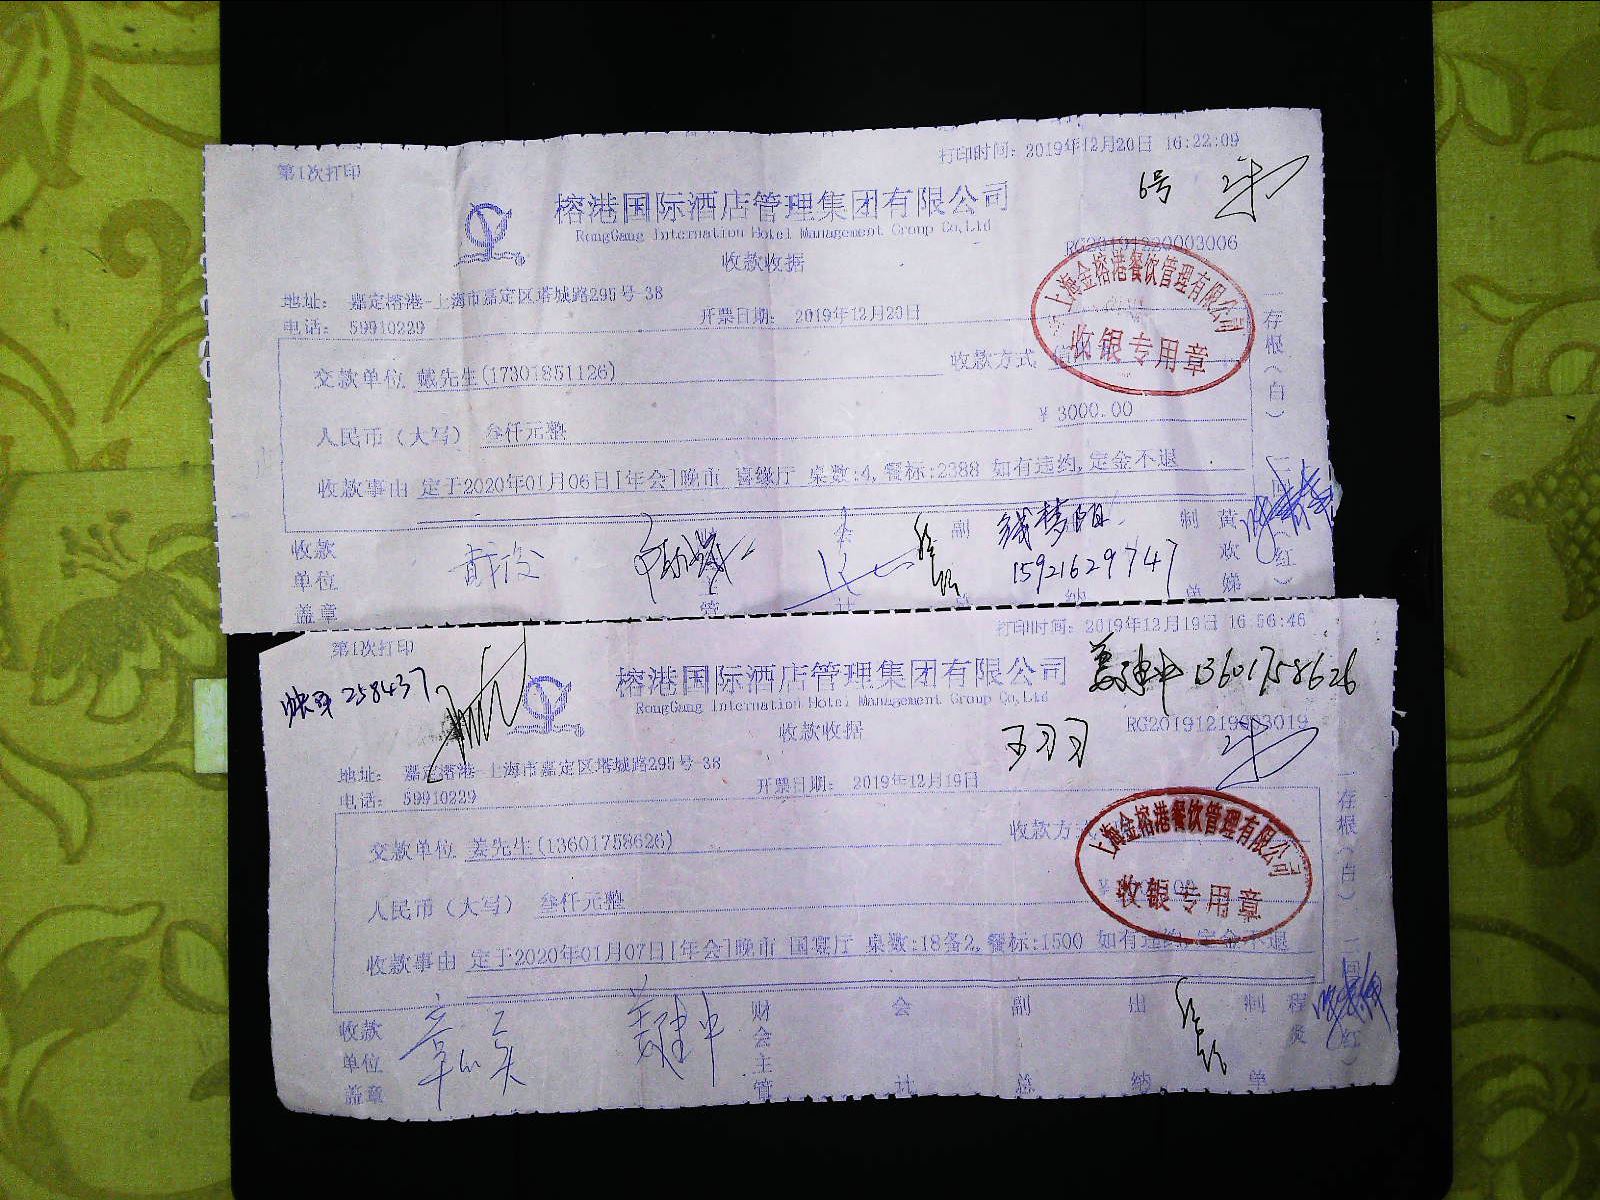 第1次打印
打印时间：2019年12月20日 16:22:09
6号
榕港国际酒店管理集团有限公司
RongGang Internation Hotel Management Group Co,Ltd
RG20191220003006
收款收据
地址： 嘉定榕港-上海市嘉定区塔城路295号-38
电话： 59910229
开票日期： 2019年12月20日
上海金榕港餐饮管理有限公司
收银专用章
交款单位 戴先生(17301851126)
收款方式
人民币（大写） 叁仟元整
￥ 3000.00
收款事由 定于2020年01月06日[年会]晚市 喜缘厅 桌数:4,餐标:2388 如有违约,定金不退
存根（白）
（红）
收款单位盖章
管
会计
副总
钱梦阳
15921629747
纳
制单
黄欢娣
第1次打印
打印时间：2019年12月19日 16:56:46
258437
榕港国际酒店管理集团有限公司
RongGang Internation Hotel Management Group Co,Ltd
姜建中 13601758626
RG20191219003019
收款收据
王习习
地址： 嘉定榕港-上海市嘉定区塔城路295号-38
电话： 59910229
开票日期： 2019年12月19日
上海金榕港餐饮管理有限公司
收银专用章
交款单位 姜先生(13601758626)
收款方式
人民币（大写） 叁仟元整
收款事由 定于2020年01月07日[年会]晚市 国宴厅 桌数:18备2,餐标:1500 如有违约,定金不退
存根（白）
（红）
收款单位盖章
姜建中
财会主管
会计
副总
出纳
制单
程